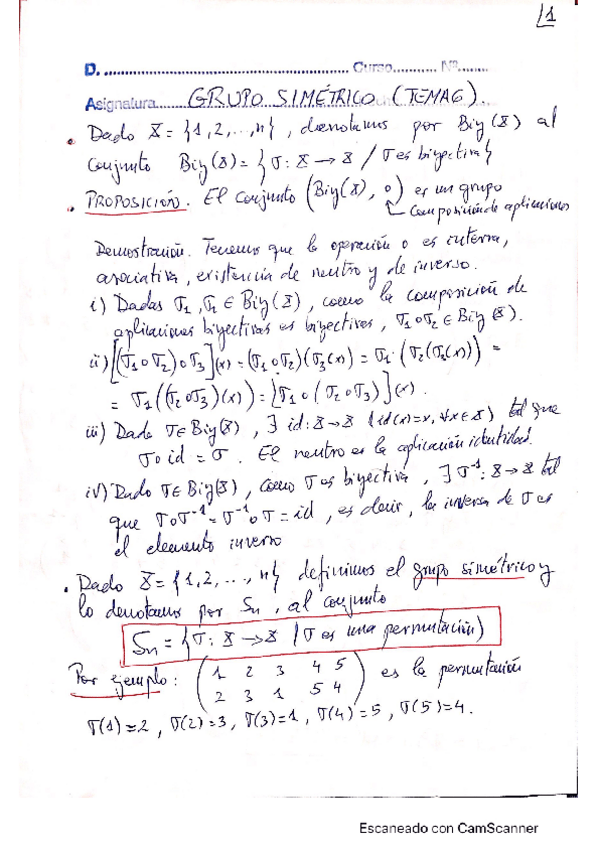 1
D. ........ Curso........ Nº........
Asignatura...... GRUPO SIMÉTRICO (TEMA 6).
• Dado X = {1,2,...,n}, denotamos por Biy(X) al
conjunto Biy(X) = {σ: X → X / σ es biyectiva}
• PROPOSICIÓN. El conjunto (Biy(X), ∘) es un grupo
composición de aplicaciones
Demostración. Tenemos que la operación ∘ es interna,
asociativa, existencia de neutro y de inverso.
i) Dadas σ₁, σ₂ ∈ Biy(X), como la composición de
aplicaciones biyectivas es biyectiva, σ₁∘σ₂ ∈ Biy(X).
ii) [(σ₁∘σ₂)∘σ₃](x) = (σ₁∘σ₂)(σ₃(x)) = σ₁(σ₂(σ₃(x))) =
= σ₁((σ₂∘σ₃)(x)) = [σ₁∘(σ₂∘σ₃)](x).
iii) Dado σ ∈ Biy(X), ∃ id: X → X (id(x)=x, ∀x∈X) tal que
σ∘id = σ. El neutro es la aplicación identidad.
iv) Dado σ ∈ Biy(X), como σ es biyectiva, ∃ σ⁻¹: X → X tal
que σ∘σ⁻¹ = σ⁻¹∘σ = id, es decir, la inversa de σ es
el elemento inverso
• Dado X = {1,2,...,n} definimos el grupo simétrico y
lo denotamos por Sn, al conjunto
Sn = {σ: X → X / σ es una permutación}
Por ejemplo: (1 2 3 4 5 es la permutación
2 3 1 5 4)
σ(1)=2, σ(2)=3, σ(3)=1, σ(4)=5, σ(5)=4.
Escaneado con CamScanner